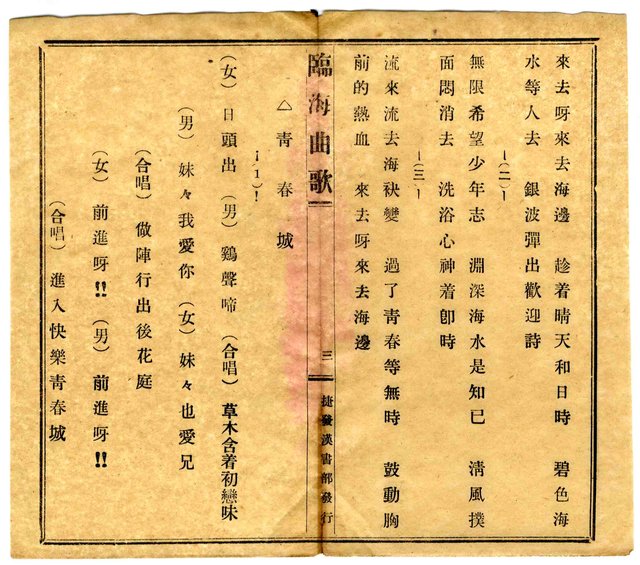 來去呀來去海邊　趁着晴天和日時　碧色海
水等人去　銀波彈出歡迎詩
(二)
無限希望少年志　淵深海水是知已　淸風撲
面悶消去　洗浴心神着卽時
(三)
流來流去海袂變　過了青春等無時　鼓動胸
前的熱血　來去呀來去海邊
臨海曲歌
三
捷發漢書部發行
△青春城
(1)
(女)　日頭出　(男)　鷄聲啼　(合唱)　草木含着初戀味
(男)　妹々我愛你　(女)　妹々也愛兄
(合唱)　做陣行出後花庭
(女)　前進呀!!　(男)　前進呀!!
(合唱)　進入快樂青春城